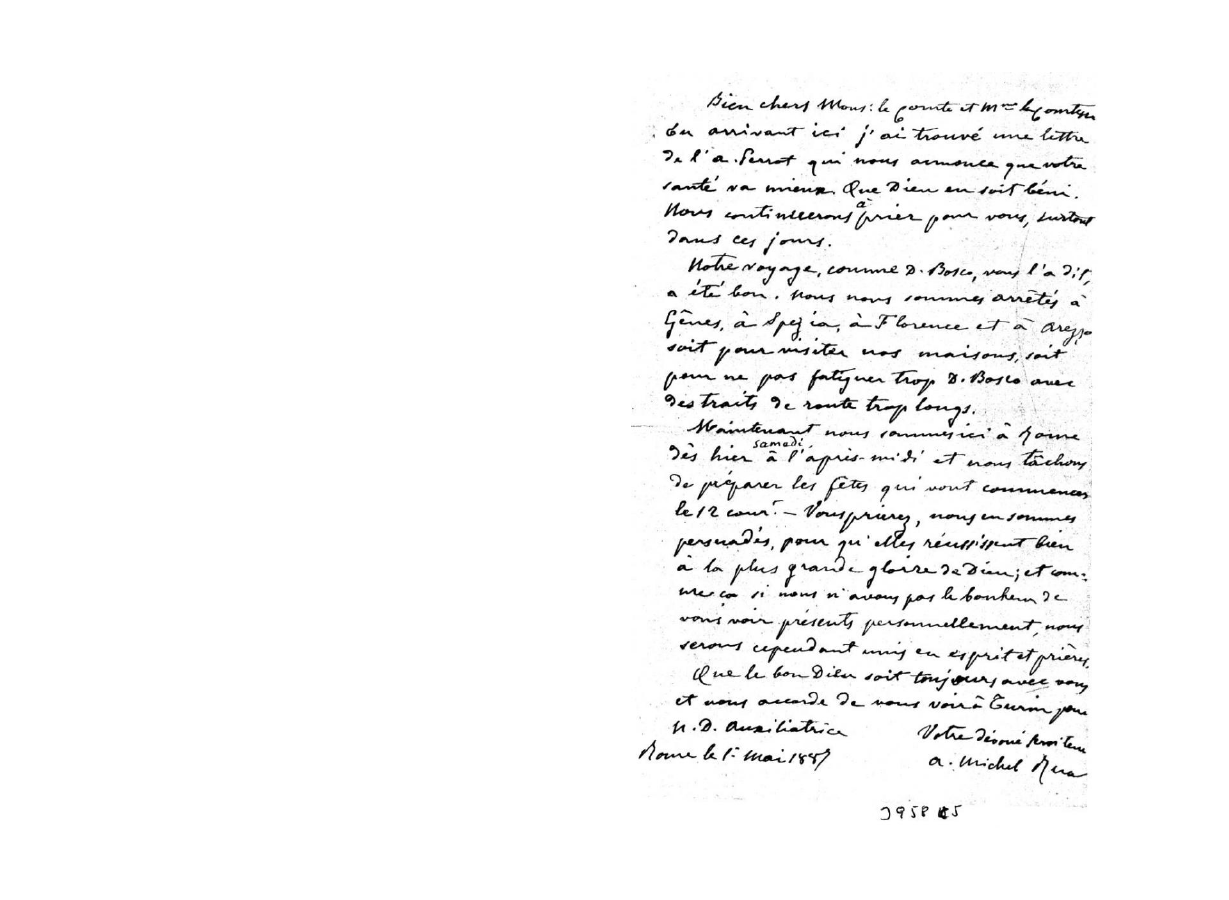 Bien chers Mons: le Comte et Mme la Comtesse
En arrivant ici j'ai trouvé une lettre
de l'a. Perrot qui nous annonce que votre
santé va mieux. Que Dieu en soit béni.
Nous continuerons à prier pour vous, surtout
dans ces jours.
Notre voyage, comme D. Bosco, vous l'a dit,
a été bon. Nous nous sommes arrêtés à
Gênes, à Spezia, à Florence et à Arezzo
soit pour visiter nos maisons, soit
pour ne pas fatiguer trop D. Bosco avec
des traits de route trop longs.
Maintenant nous sommes ici à Rome
dès hier samedi à l'après-midi et nous tâchons
de préparer les fêtes qui vont commencer
le 12 cour.t — Vous prierez, nous en sommes
persuadés, pour qu'elles réussissent bien
à la plus grande gloire de Dieu; et com=
me ça si nous n'avons pas le bonheur de
vous voir présents personnellement, nous
serons cependant unis en esprit et prières.
Que le bon Dieu soit toujours avec vous
et nous accorde de vous voir à Turin pour
N. D. Auxiliatrice
Votre dévoué serviteur
Rome le 1r Mai 1887
a. Michel Rua
3958 C5